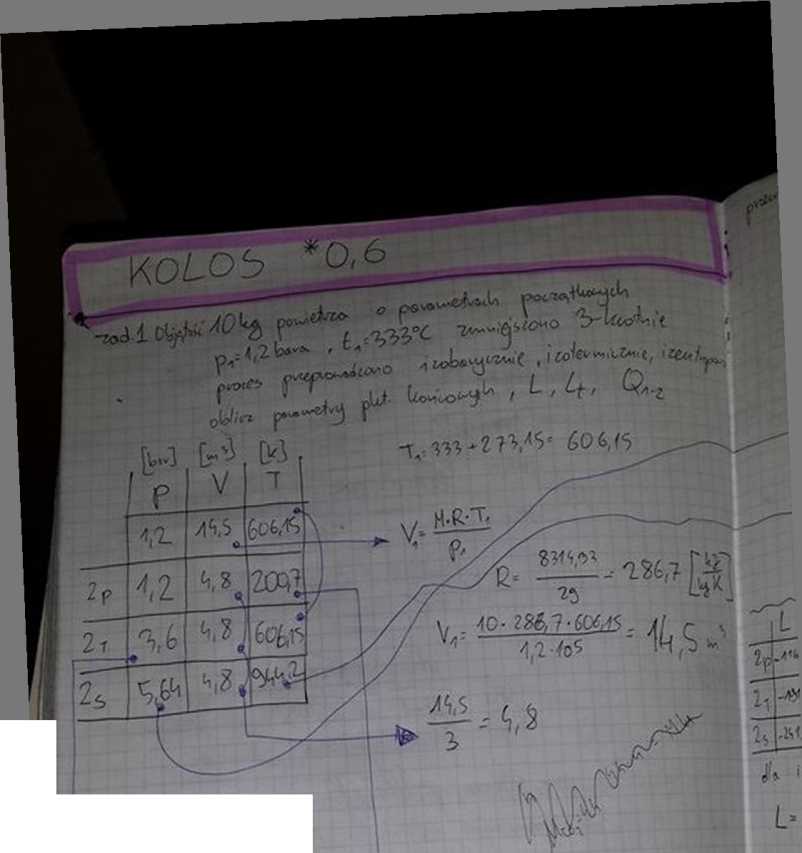 KOLOS *0,6
zad.1 Objętość 10kg powietrza o parametrach początkowych
p₁=1,2 bara, t₁=333°C zmniejszono 3-krotnie
proces przeprowadzono izobarycznie, izotermicznie, izentropow
oblicz parametry pkt. końcowych, L, Lt, Q₁₋₂
T₁=333+273,15= 606,15
[bar] [m³] [K]
P V T
1,2 14,5 606,15
2p 1,2 4,8 200,7
2T 3,6 4,8 606,15
2s 5,64 4,8 944,2
V₁= M·R·T₁ / P₁
R= 8314,33 / 29 = 286,7 [kJ/kgK]
V₁= 10·286,7·606,15 / 1,2·105 = 14,5 m³
14,5 / 3 = 4,8
L
2p
2T
2s
dla i
L=